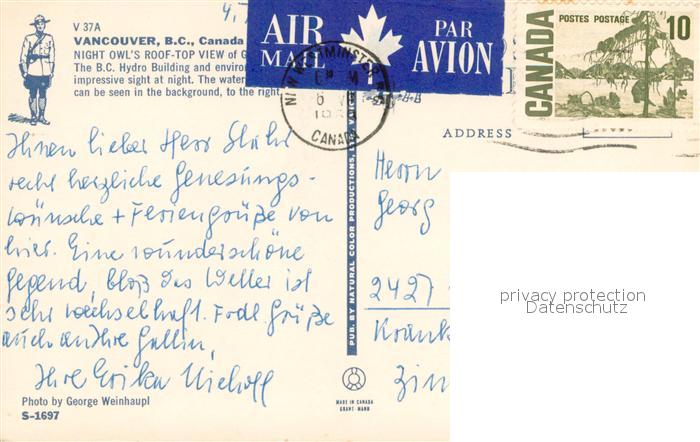 V 37A
VANCOUVER, B.C., Canada
NIGHT OWL'S ROOF-TOP VIEW of G
The B.C. Hydro Building and environ
impressive sight at night. The water
can be seen in the background, to the right.
4.
AIR MAIL
PAR AVION
NEW WESTMINSTER
CANADA
POSTES POSTAGE
10
CANADA
ADDRESS
Ihnen lieber Herr
recht herzliche Genesungs-
wünsche + Feriengrüße von
hier. Eine wunderschöne
Gegend, bloß das Wetter ist
sehr wechselhaft. Frdl. Grüße
auch an Ihre Gattin,
Ihre Erika Niehoff
Photo by George Weinhaupl
S-1697
PUB. BY NATURAL COLOR PRODUCTIONS, LTD. VANC
MADE IN CANADA
GRANT-MANN
Herrn
Georg
2427
Krank
Zim
privacy protection
Datenschutz